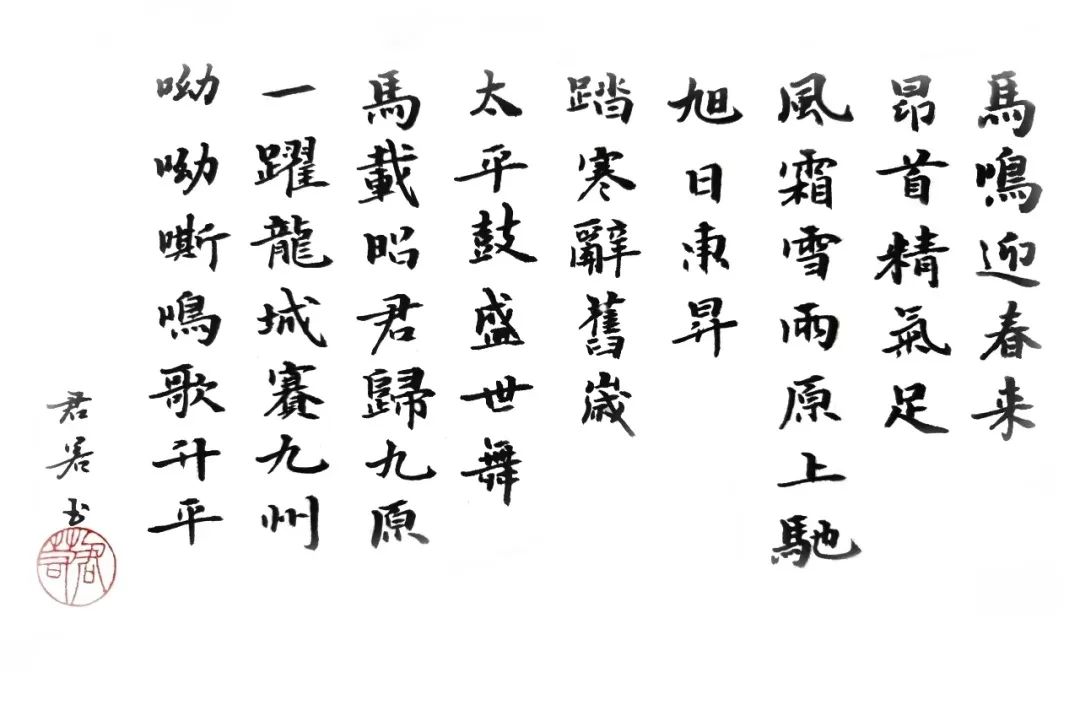 馬鳴迎春来
昂首精氣足
風霜雪雨原上馳
旭日東昇
踏寒辭舊歲
太平鼓盛世舞
馬載昭君歸九原
一躍龍城賽九州
呦呦嘶鳴歌升平
君 书